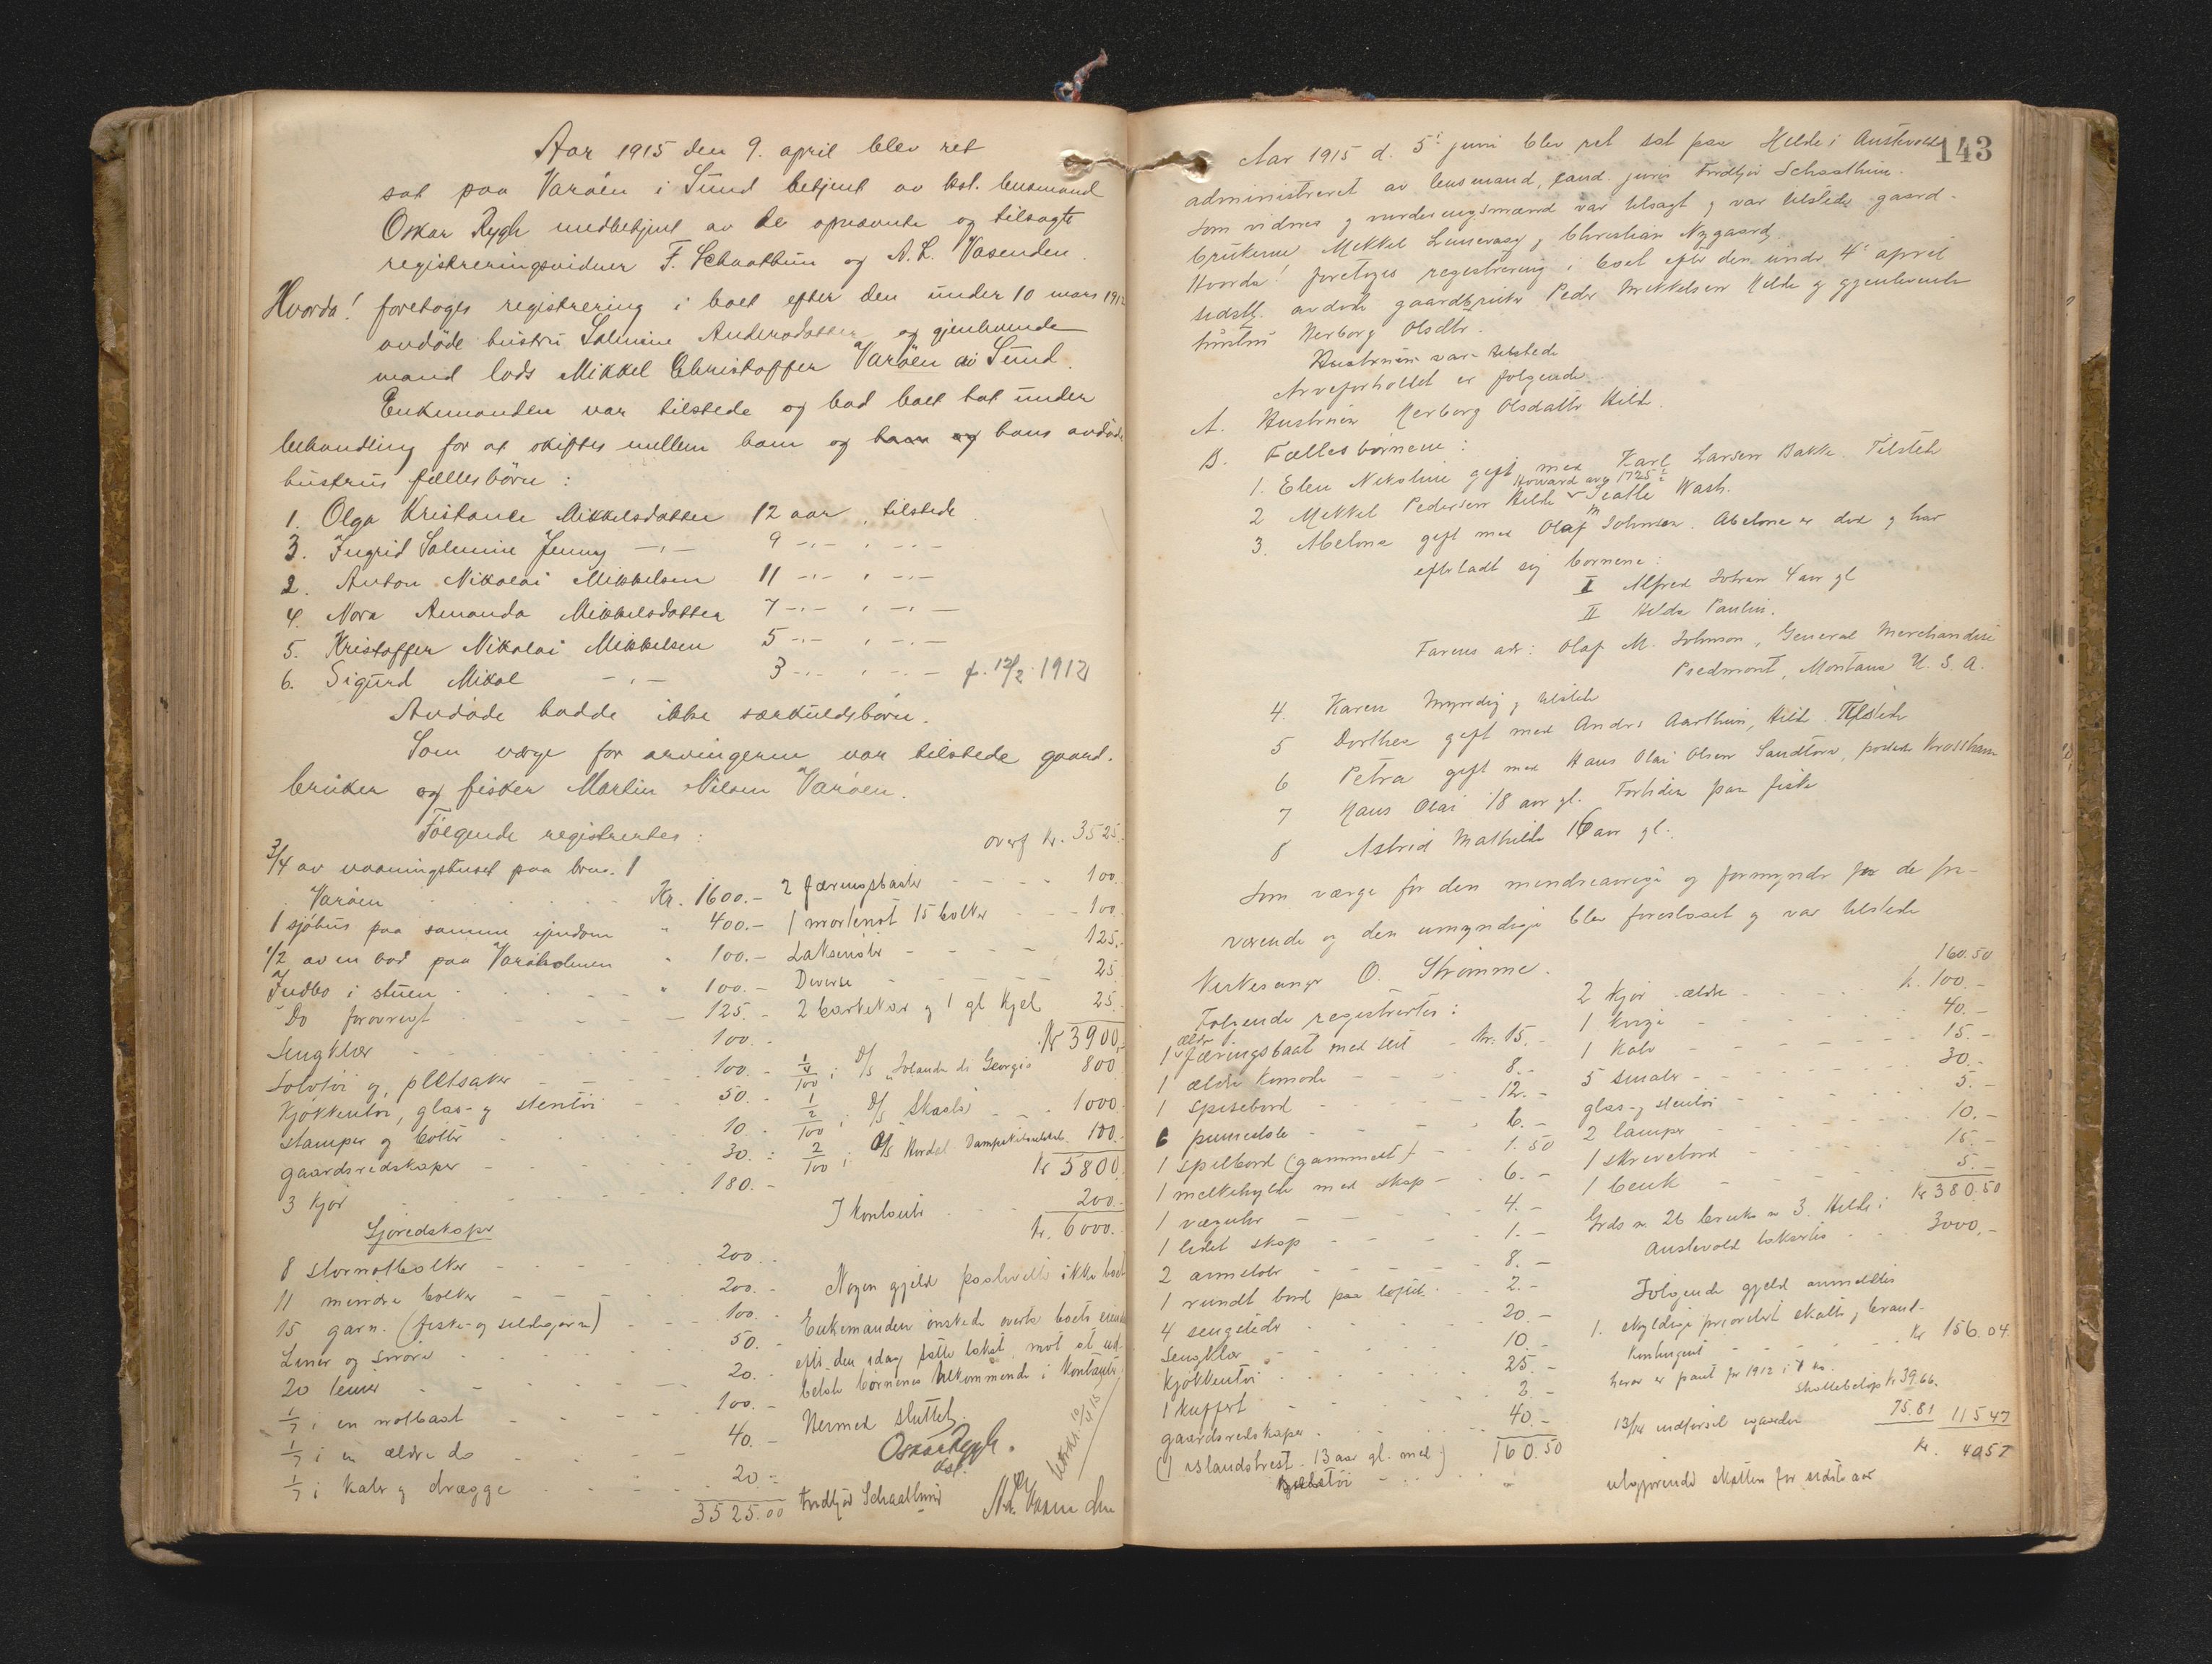 Aar 1915 den 9. april blev ret
sat paa Varöen i Sund betjent av kst. lensmand
Oskar Rygh medbetjent av de opnævnte og tilsagte
registreringsvidner F. Schaathun og A. L. Vasenden.
Hvorda! foretoges registrering i boet efter den under 10 mars 1912
avdöde hustru Salmine Andersdatter og gjenlevende
mand lods Mikkel Christoffer Varöen i Sund.
Enkemanden var tilstede og bad boet tat under
behandling for at skiftes mellem ham og hans avdöde
hustrus fællesbörn:
1. Olga Kristance Mikkelsdatter 12 aar, tilstede
3. Ingrid Salmine Jenny -"- 9 -"- , -"-
2. Anton Nikolai Mikkelsen 11 -"- , -"-
4. Nora Amanda Mikkelsdatter 7 -"- , -"-
5. Kristoffer Nikolai Mikkelsen 5 -"- , -"-
6. Sigurd Mikal -"- 3 -"- , -"- f. 12/2 1912
Avdöde hadde ikke særkuldsbörn.
Som verge for arvingerne var tilstede gaard-
bruker og fisker Martin Nilsen Varöen.
Fölgende registrertes:
3/4 av vaaningshuset paa brns. 1
Varöen Kr. 1600.-
1 sjöhus paa samme eiendom " 400.-
1/2 av en bod paa Varöholmen " 100.-
Indbo i stuen " 100.-
Do forövrigt 125.-
Sengklær 100.-
Sölvtöi og pletsaker 100.-
Kjökkentöi, glas- og stentöi 50.-
Stamper og bötter 10.-
gaardsredskaper 30.-
3 kjör 180.-
Sjöredskaper
8 stornotbolker 200.-
11 mindre bolker 200.-
15 garn (fiske- og sildegarn) 100.-
Liner og snörer 50.-
20 teiner 20.-
1/7 i en notbaat 100.-
1/7 i en ældre do 40.-
1/7 i kaler og drægge 20.-
3525.00
overf kr. 3525.-
2 færingsbaater 100.-
1 mortenot 15 bolker 100.-
Laksenöter 125.-
Diverse 25.-
2 barkekar og 1 gl kjel 25.-
Kr 3900.-
1/4/100 i D/S "Jolanda di Giorgio" 800.
1/2/100 i D/S Skaalö 1000.-
2/100 i A/S Hordal. Dampskibsselskab 100.-
Kr 5800.-
I kontanter 200.-
Kr. 6000.-
Nogen gjeld paahviler ikke boet
Enkemanden önskede overta boets eiend
efter den idag satte takst mot at ut-
betale börnenes tilkommende i kontanter.
Hermed sluttet.
Oskar Rygh.
kst.
Fridtjov Schaathun A. L. Vasenden
143
Aar 1915 d. 5te juni blev ret sat paa Hilde i Austevold
administreret av lensmand, cand. juris Fridtjov Schaathun.
Som vidner og vurderingsmænd var tilsagt og var tilstede gaard-
brukerne Mikkel og Christian Nygaard.
Hvorda! foretoges registrering i boet efter den under 4de april
sidstl. avdöde gaardbruker Peder Mikkelsen Hilde og gjenlevende
hustru Herborg Olsdtr.
Hustruen var tilstede
Arveforholdet er fölgende.
A. Hustruen Herborg Olsdatter Hilde.
B. Fællesbörnene:
1. Elen Nikoline gift med Karl Larsen Bakke. Tilstede
2 Mikkel Pedersen Hilde Howard ave 1725 Seatle Wash.
3. Abelone gift med Olaf M Johnson. Abelone er död og har
efterladt sig börnene:
I Alfred Johan 4 aar gl
II Hilda Paulin.
Farens adr: Olaf M. Johnson, General Merchandise
Piedmont, Montana U. S. A.
4. Karen myndig, tilstede
5 Dorthea gift med Anders Aarthun, Hilde. Tilstede
6 Petra gift med Hans Olai Olsen Sandtorv, poststed Krossham
7 Hans Olai 18 aar gl. Fortiden paa fiske
8 Astrid Mathilde 16 aar gl.
Som værge for den mindreaarige og formynder for de fra-
værende og den umyndige blev foreslaaet og var tilstede
Kirkesanger O. Strömme.
Fölgende registrertes:
1 ældre færingsbaat med seil Kr. 15.-
1 ældre komode 8.-
1 spisebord 12.-
6 pinnestole 6.-
1 spilbord (gammelt) 1.50
1 melkehylde med skap 6.-
1 vægur 4.-
1 lidet skap 1.-
2 armstoler 8.-
1 rundt bord paa loftet 2.-
4 sengsteder 20.-
Sengklær 10.-
Kjökkentöi 25.-
1 kuffert 2.-
gaardsredskaper 40.-
(1 islandshest 13 aar gl. med) 160.50
kjöretöi "
160.50
2 kjör ældre k. 100.-
1 kvige 40.-
1 kalv 15.-
5 smaler 30.-
glas- og stentöi 5.-
2 lamper 10.-
1 skrivebord 15.-
1 benk 5.-
Kr 380.50
Grds n. 26 bruks n 3. Hilde i
Austevold taksertes 3000.-
Fölgende gjeld anmeldtes
1. skyldige prioritert skatter og brand-
kontingent Kr 156.04.
herav er pant for 1912 i 1 ko.
skattebelöp kr 39.66.
13/14 utförsel 75.81 115 47
Kr. 40 57
utgjörende skatten for sidste aar